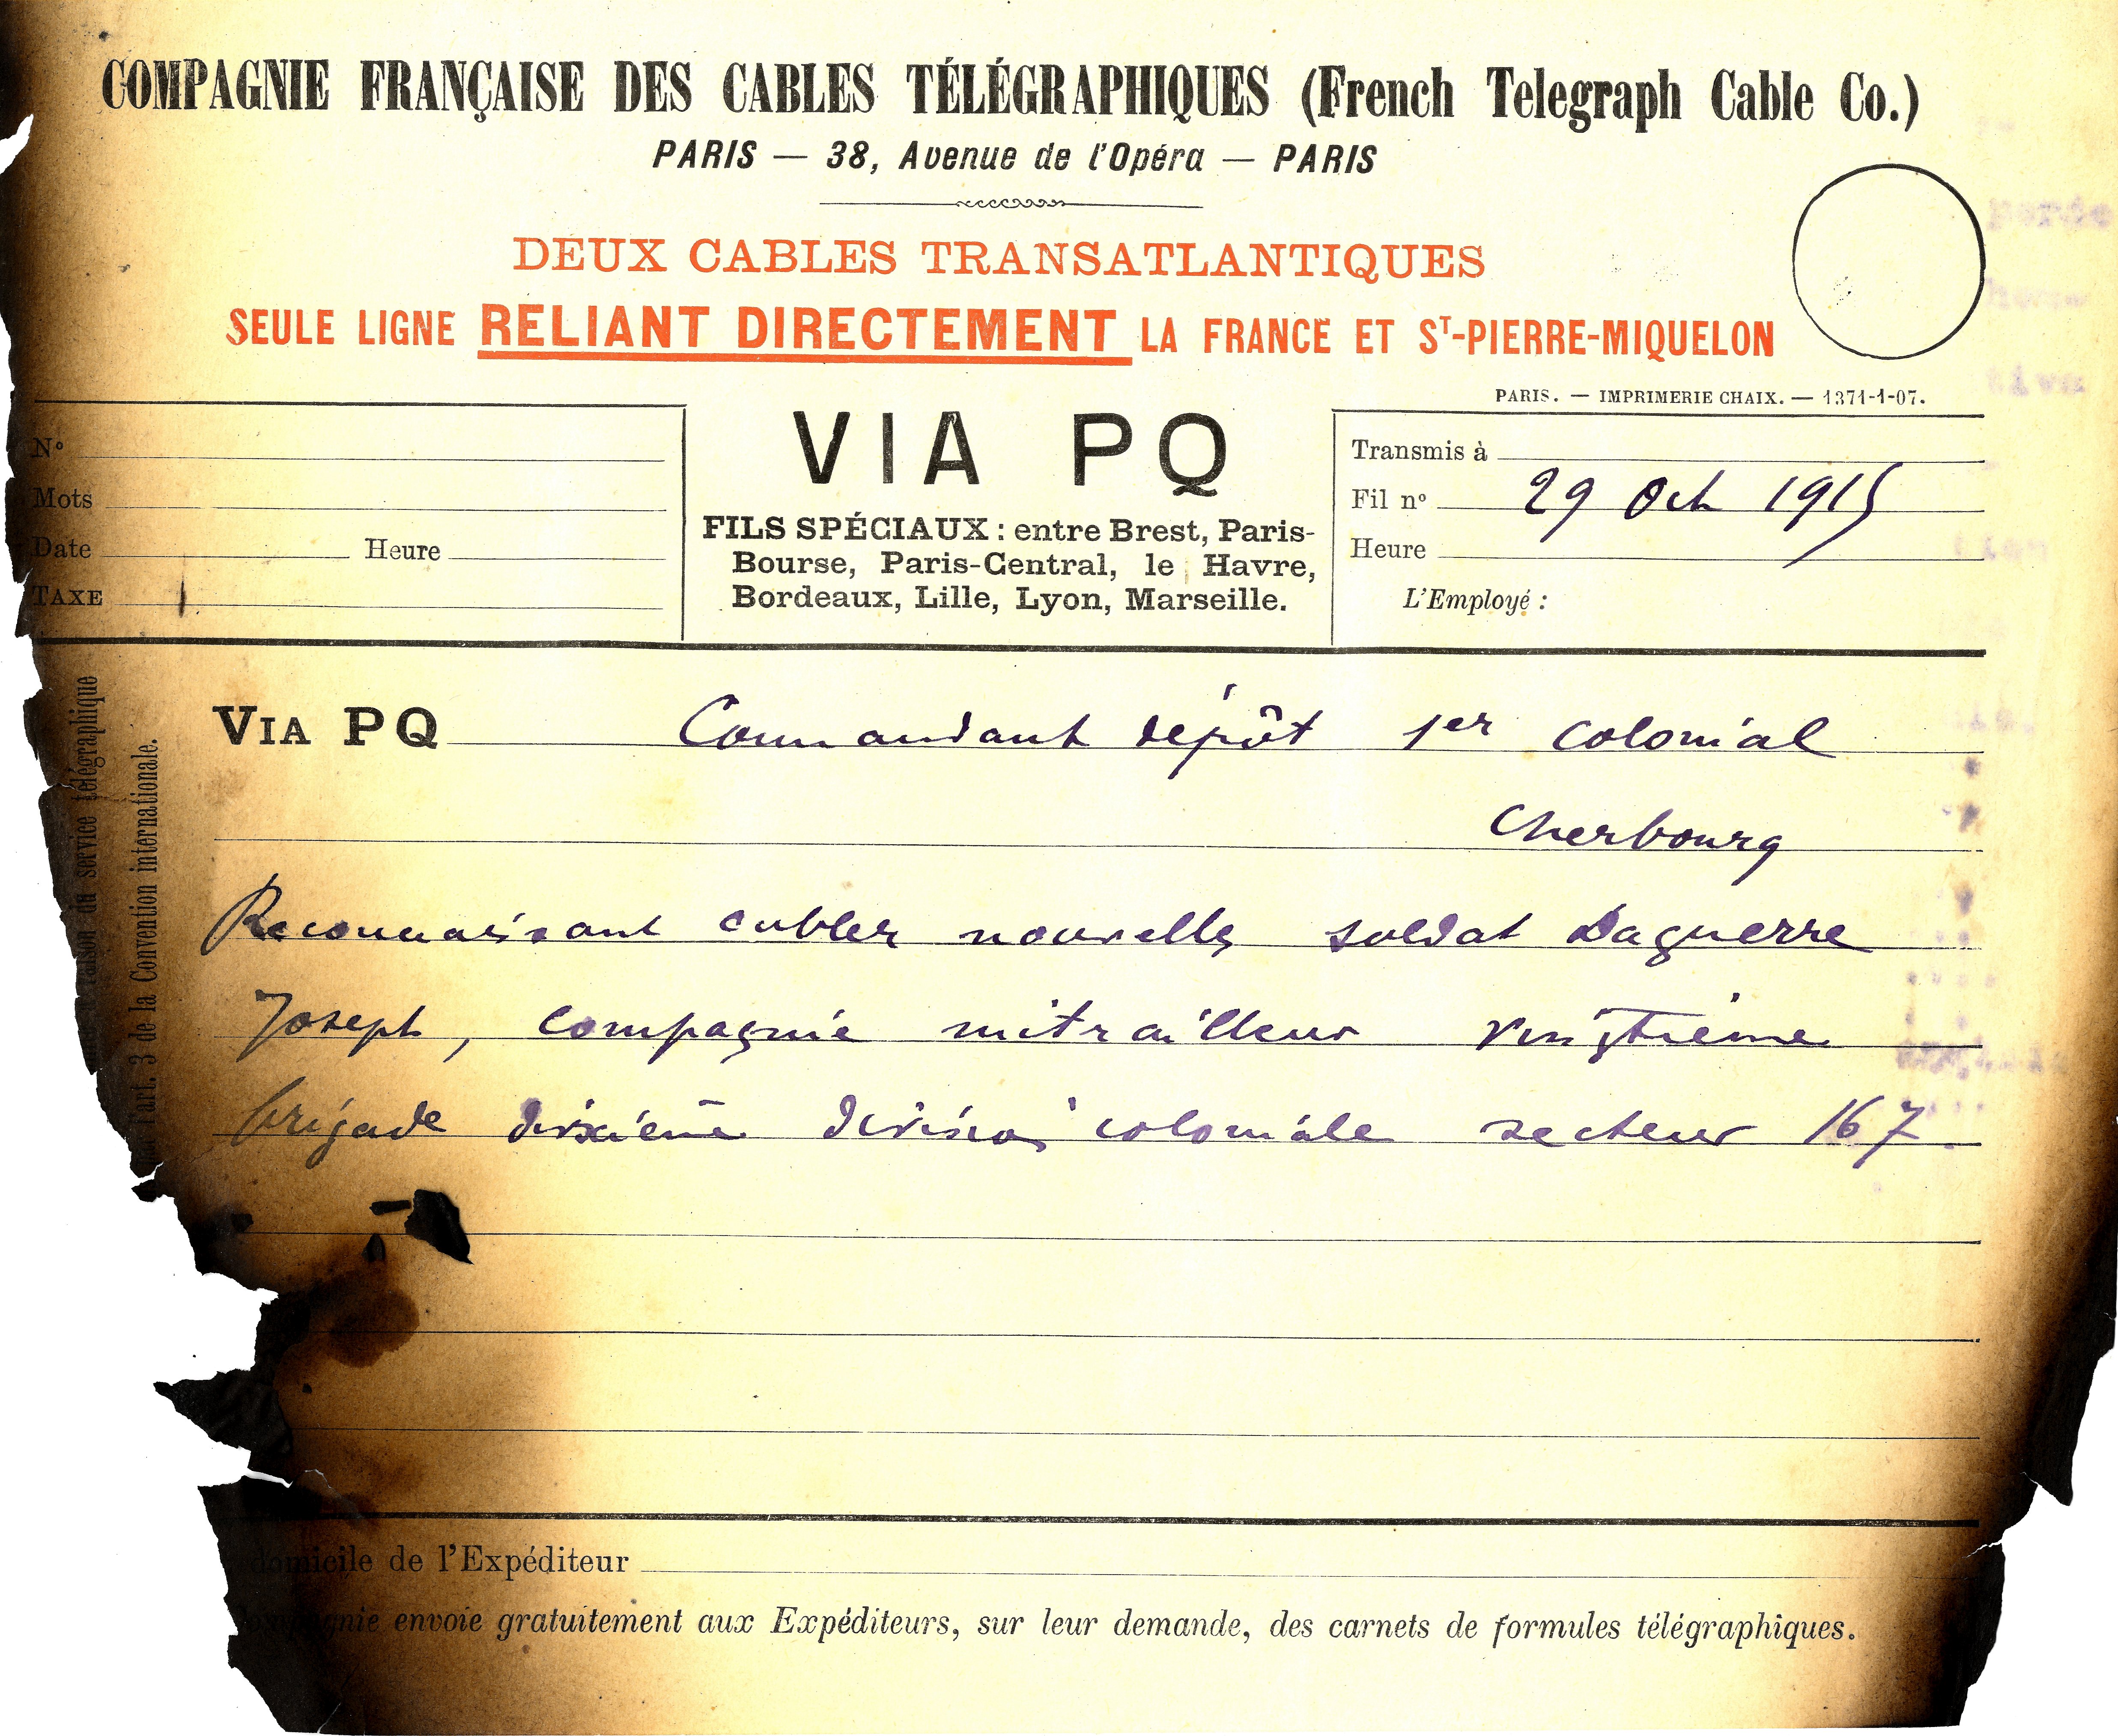 COMPAGNIE FRANÇAISE DES CABLES TÉLÉGRAPHIQUES (French Telegraph Cable Co.)
PARIS — 38, Avenue de l'Opéra — PARIS
DEUX CABLES TRANSATLANTIQUES
SEULE LIGNE RELIANT DIRECTEMENT LA FRANCE ET ST-PIERRE-MIQUELON
PARIS. — IMPRIMERIE CHAIX. — 1371-1-07.
No
Mots
Date Heure
TAXE
VIA PQ
FILS SPÉCIAUX : entre Brest, Paris-
Bourse, Paris-Central, le Havre,
Bordeaux, Lille, Lyon, Marseille.
Transmis à
Fil no 29 Oct 1915
Heure
L'Employé :
du service télégraphique
l'art. 3 de la Convention internationale.
VIA PQ Commandant dépôt 1er colonial
Cherbourg
Reconnaissant cabler nouvelles soldat Daguerre
Joseph, compagnie mitrailleur vingtième
brigade dixième division coloniale secteur 167
domicile de l'Expéditeur
Compagnie envoie gratuitement aux Expéditeurs, sur leur demande, des carnets de formules télégraphiques.